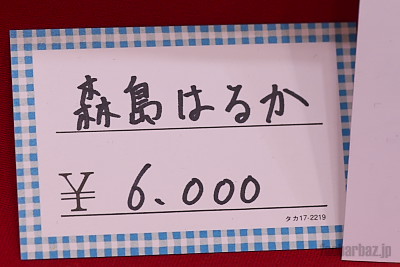 森島はるか
¥ 6.000
タカ17-2219
arbaz.jp